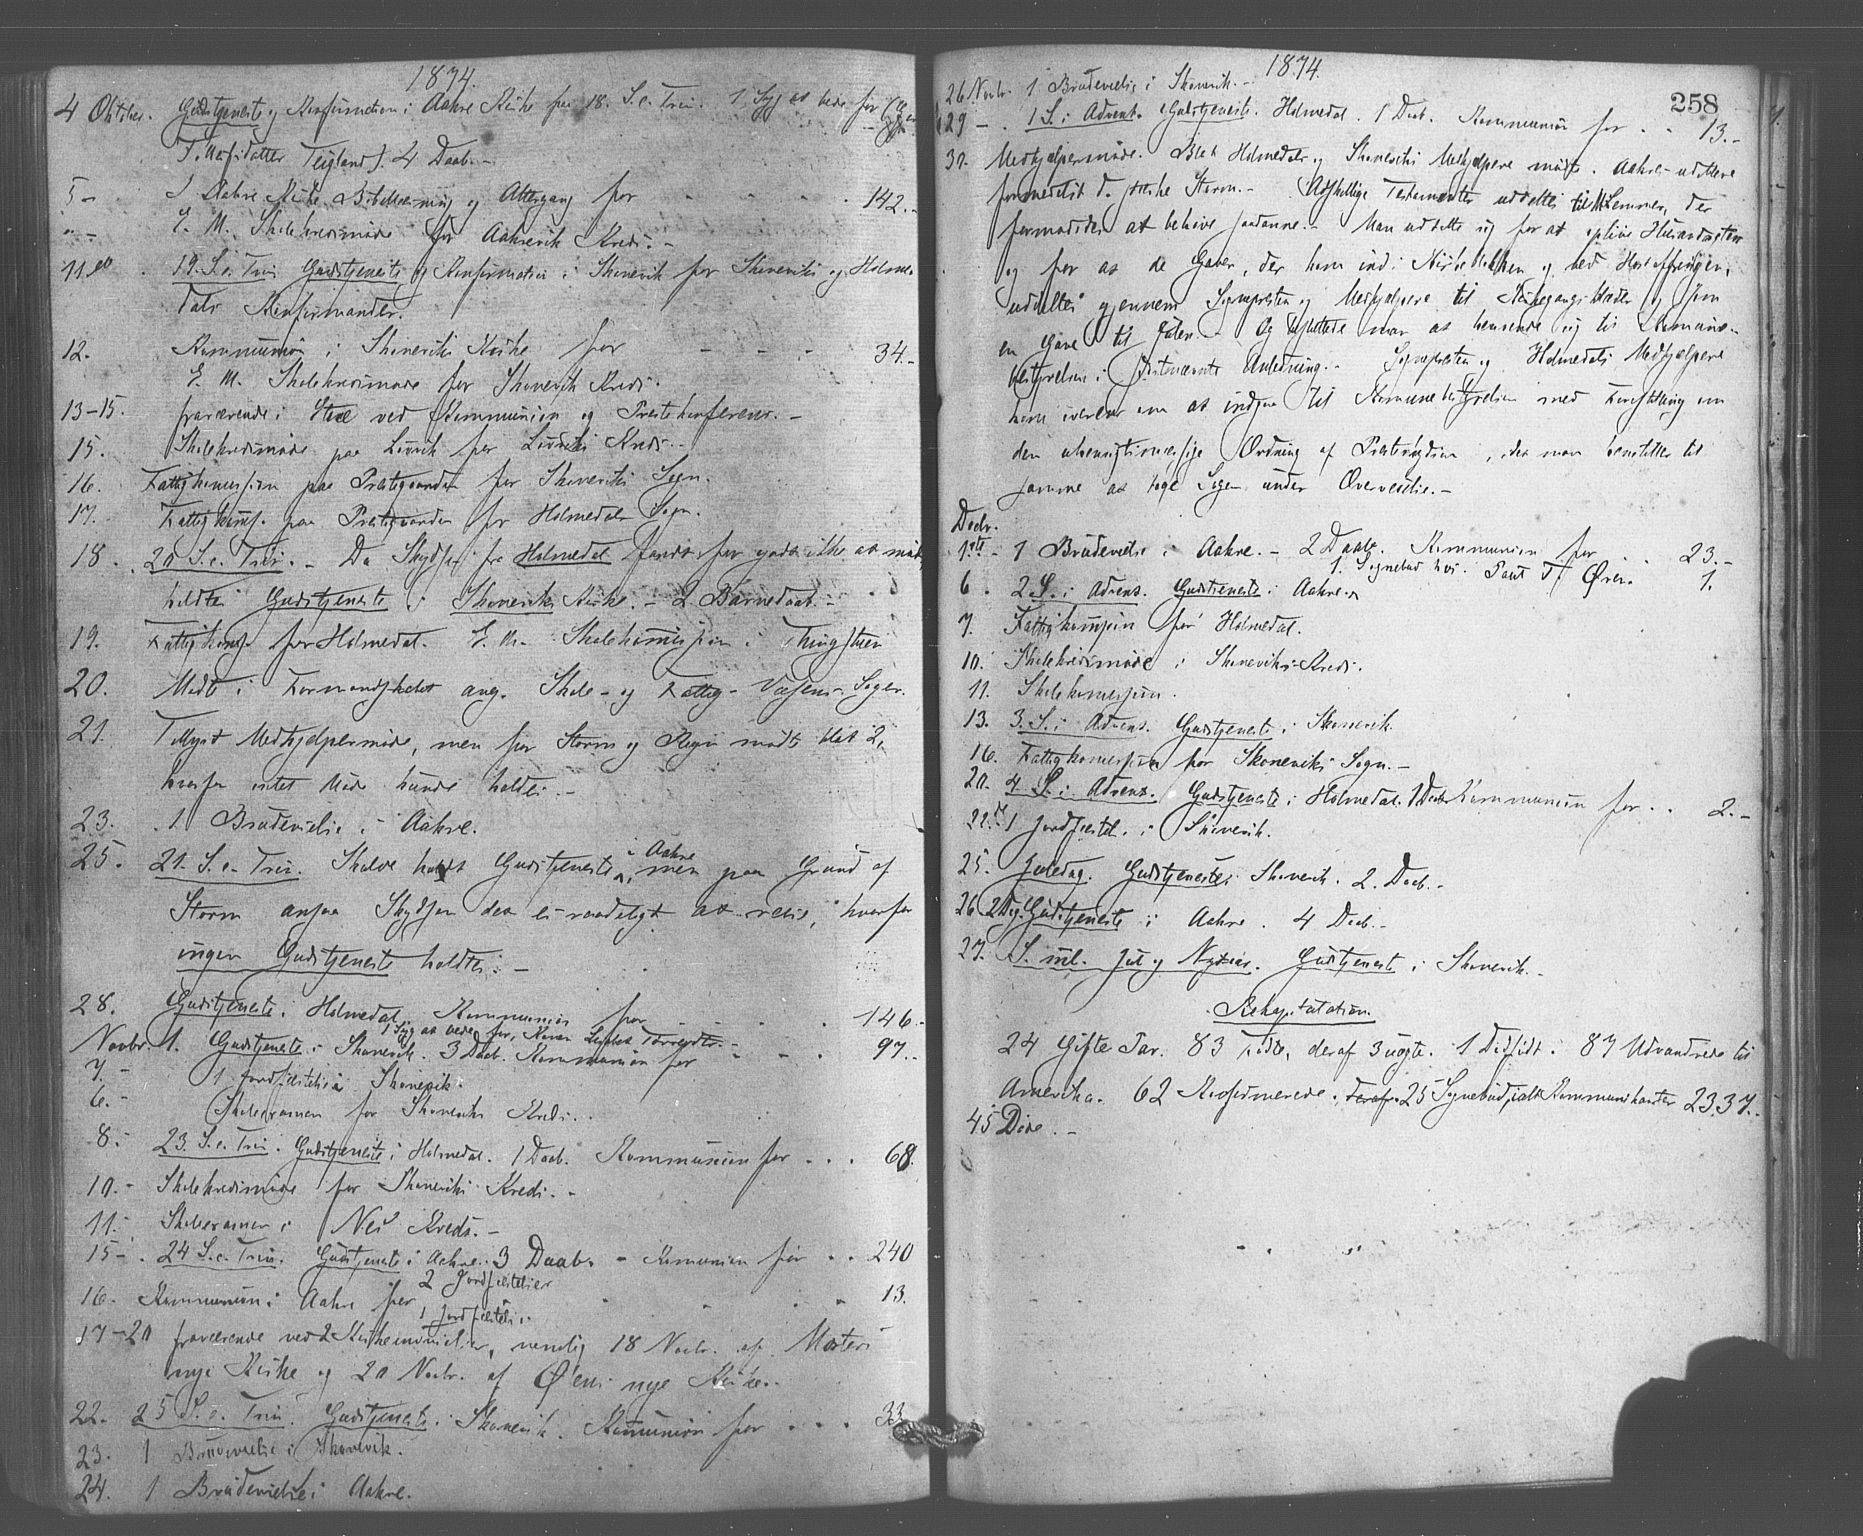 1874.
4 Oktober. Gudstjeneste og Konfirmation i Aakre Kirke paa 18. S. e. Trin. 1 Syg at bede for
Teigland). 4 Daab. -
5 - I Aakre Kirke Bibellæsning og Altergang for 142. -
" - E. M. Skolekredsmøde for Aakrevik Kreds. -
11. 19. S. e. Trin. Gudstjeneste og Konfirmation i Skonevik for Skoneviks og Holme-
dals Konfirmander.
12. Kommunion i Skoneviks Kirke for - - - 34. -
E. M. Skolekredsmøde for Skonevik Kreds.
13-15. fraværende i ved Kommunion og Præstekonference. -
15. Skolekredsmøde paa for Kreds. -
16. Fattigkomission paa Præstegaarden for Skoneviks Sogn.
17. Fattigkomis. paa Præstegaarden for Holmedals Sogn.
18. 20 S. e. Trin. - Da Skydsen fra Holmedal fandt for godt ikke at møde
holdtes Gudstjeneste i Skoneviks Kirke. - 2 Barnedaab. -
19. Fattigkomis. for Holmedal. E. M. Skolekomission i Thingstuen
20. Møde i Formandskabet ang. Skole- og Fattig-Væsens-Sager.
21. Tillyst Medhjælpermøde, men for Storm og Regn mødte blot 2,
hvorfor intet Møde kunde holdes. -
23. 1 Brudevielse i Aakre.
25. 21. S. e. Trin. Skulde holdt Gudstjeneste i Aakre, men paa Grund af
Storm ansaa Skydsen det ei raadeligt at reise, hvorfor
ingen Gudstjeneste holdtes. -
28. Gudstjeneste i Holmedal. Kommunion for - - . 146. -
1 Syg at bede for,
Novbr. 1. Gudstjeneste i Skonevik. 3 Daab. Kommunion for - - . 97. -
7. - 1 Jordfæstelse i Skonevik.
6. - Skoleexamen for Skoneviks Kreds. .
8. - 23. S. e. Trin. Gudstjeneste i Holmedal. 1 Daab. Kommunion for . . . 68.
10. - Skolekredsmøde for Skoneviks Kreds. -
11. - Skoleexamen i Nes Kreds. -
15 - . 24 S. e. Trin. Gudstjeneste i Aakre. 3 Daab. - Komunion for . . 240
2 Jordfæstelser
16. Kommunion i Aakre for . . 13.
1 Jordfæstelse.
17-20 fraværende ved 2 Kirkeindvielser, nemlig 18 Novbr. af Mosters
nye Kirke og 20 Novbr. af Ølens nye Kirke.
22. 25 S. e. Trin. Gudstjeneste i Skonevik. Komunion for . . . 33
23. 1 Brudevielse i Skonevik.
24. 1 Brudevielse i Aakre.
1874.
258
26 Novbr. 1 Brudevielse i Skonevik. -
29 - . 1 S. i Advent. Gudstjeneste. Holmedal. 1 Daab. Kommunion for . . 13. -
30. Medhjælpermøde. Blot Holmedals og Skoneviks Medhjælpere mødte. Aakres udeblev
formedelst d. Storm. - Adskillige Testamenter uddeltes til Lemmer, der
formodedes at behøve saadanne. - Man udtalte sig for at oplive Huusandagten
og for at de Gaver, der kom ind i Kirkebløkken og ved Høstoffringen,
uddeltes gjennem Sognepræsten og Medhjælpere til og som
en Gave til Julen. - Og besluttede man at henvende sig til Komune-
bestyrelsen i Anledning. - Sognepræsten og Holmedals Medhjælpere
kom overens om at indgaa til Komunebestyrelsen med Forestilling om
den uhensigtsmæssige Ordning af , idet man henstiller til
samme at tage Sagen under Overveielse. -
Decbr.
1ste - 1 Brudevielse i Aakre. - 2 Daab. Kommunion for . 23. -
1. Sognebud hos . 1.
6 . 2 S. i Advent. Gudstjeneste i Aakre.
7. Fattigkomision for Holmedal.
10. Skolekredsmøde i Skoneviks Kreds.
11. Skolekomission.
13. 3. S. i Advent. Gudstjeneste i Skonevik.
16. Fattigkomission for Skoneviks Sogn. -
20. 4. S. i Advent. Gudstjeneste i Holmedal. 1 Daab. Kommunion for . . 2. -
22. 1 Jordfæstel. i Skonevik.
25. Juledag. Gudstjeneste i Skonevik. 2. Daab. -
26 2 Dag. Gudstjeneste i Aakre. 4 Daab. -
27. S. ml. Jul og Nytaar. Gudstjeneste i Skonevik. -
Rekapitulation.
24 Gifte Par. 83 Fødte, deraf 3 uægte. 1 Dødfødt. 87 Udvandrede til
Amerika. 62 Konfirmerede. 25 Sognebud, ialt Kommunikanter 2337. -
45 Døde. -